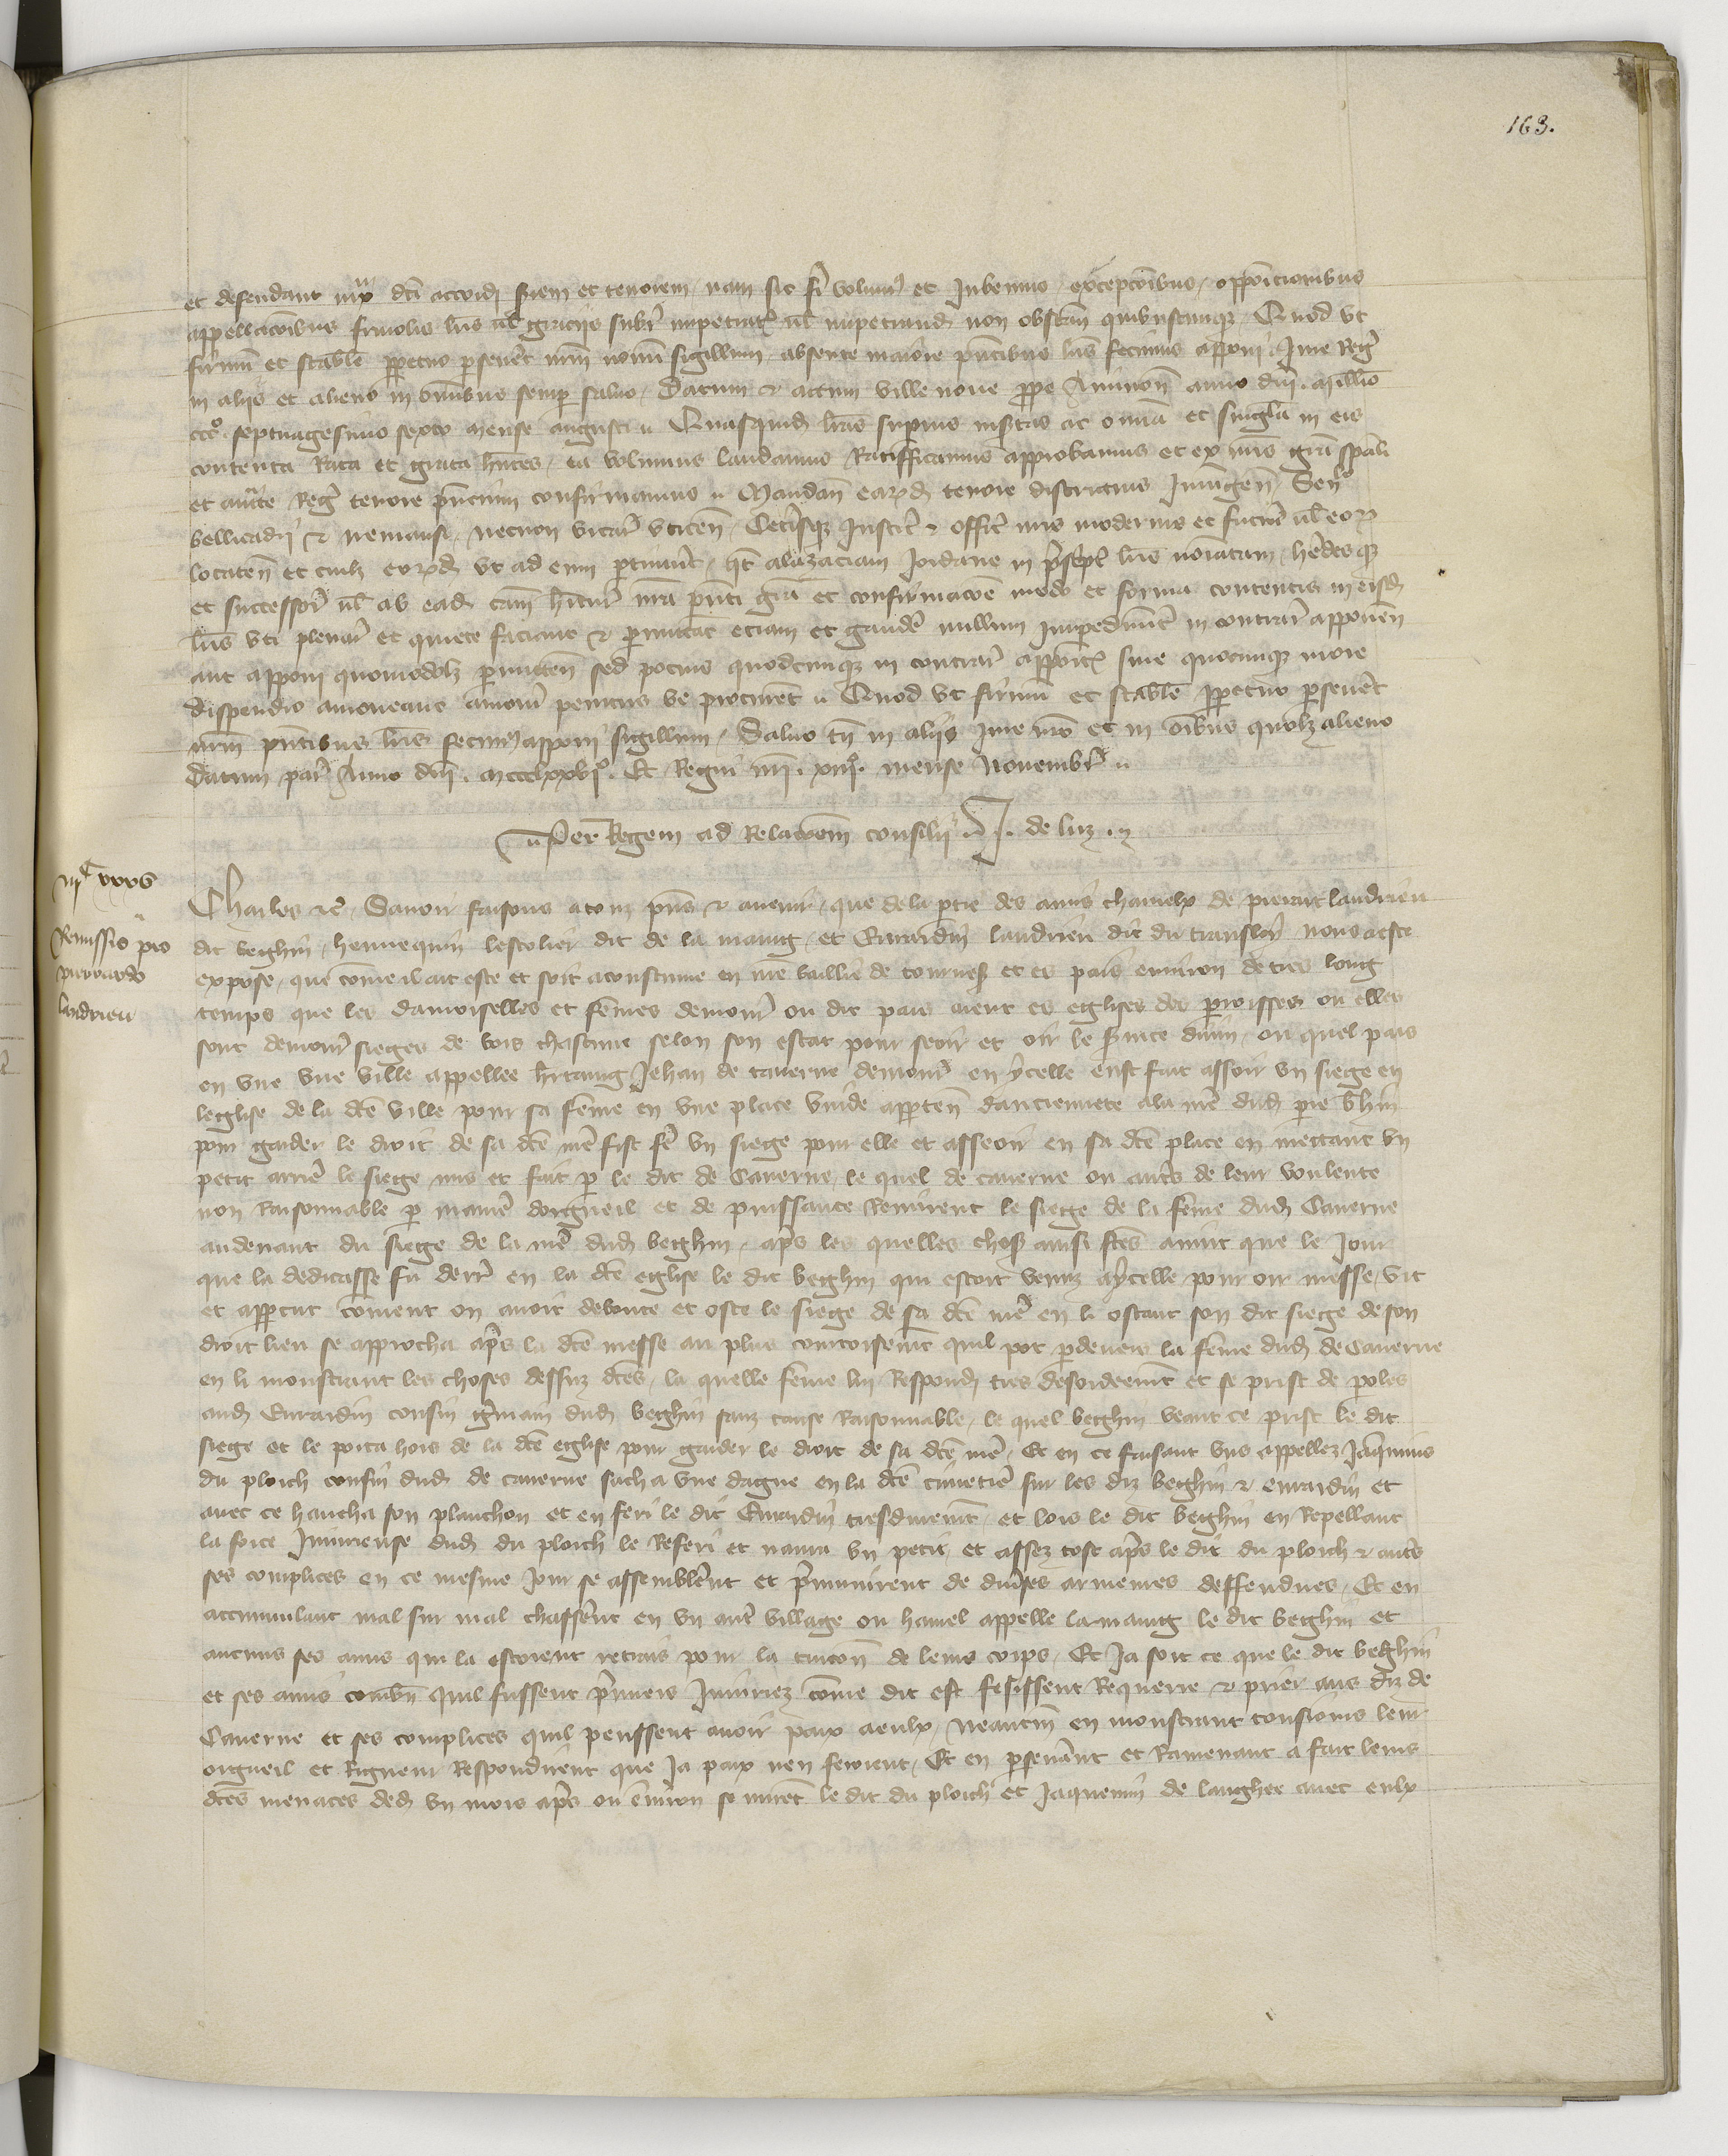 163.
et defendant iuxta dcī accordi seriem et tenorem nam sic fieri volumus et Jubemus excepcōibus opposicionibus
appellacōibus frivolis lrīs vel graciis subr impetratis vel impetrand non obstan quibuscunque Quod vt
firmū et stabile perpetuo perseveret nrm novū sigillum absente maiore pntibus lrīs fecimus apponi Jure Reg
in aliis et alieno in omnibus semper salvo Datum et actum ville nove prope Avinon anno dni millō
cccº septuagesimo sexto mense augusti Quasquid lras superius insertas ac omīa et singula in eis
contenta Rata et grata hntes ea volumus laudamus Ratifficamus approbamus et ex nris grā spāli
et auctē Reg tenore pncium confirmamus Mandan earūd tenore districtius Iniungen Sen
bellicadri et nemausi necnon vicar vticen Ceterisque Justic et offic nris modernis et futur vel eor
locaten et cuilz eorūd vt ad eum ptinuerit qt alazaciam Jordane in prescp lris noīatam heredes que
et successor vel ab ead cam hntur nra pnti grā et confirmacōe modo et forma contentis in eisd
lrīs vti plenar et quiete faciant et pmittat etiam et gaudē nullum impedimēt in contrar apponen
aut apponi quomodolz pmitten sed pocius quodcunque in contrar apposit sine quocunque more
dispendio amoveant amoveri penitus ve procurēt Quod vt firmū et stabile ppetuo pseveret
nrm pntibus lris fecimus apponi sigillum Salvo tn in aliis Jure nro et in oībus quolz alieno
Datum par Anno dni mccclxxviº Et Regni nri xiiiº mense Novembr
Per Regem ad Relacōem consilii J. de luz
iijᶜ xxxv
Remissio pro
pierardo
landrieu
Charles etc Savoir faisons a touz pns et avenir que de la ptie des amis charnelx de pierart landrieu
dit beghin hennequin lescolier dit de la maing et Evrardin landrieu dit du transloy nous a este
expose que cōme il ait este et soit acoustume en nre baillie de tournes et es pais environ de tres long
temps que les damoiselles et fēmes demour ou dit pais aient es eglises des perroisses ou elles
sont demour sieges de bois chascune selon son estat pour seoir et oir le service divin ou quel pais
en vne vne ville appellee hertaing Jehan de taverne demour en ycelle eust fait assoir vn siege en
leglise de la dcē ville pour sa fēme en vne place vuide apparten danciennete a la mē dud pie bhin
pour garder le droit de sa dcē mē fist fē vn siege pour elle et asseoir en sa dcē place en mettant vn
petit arriē le siege mis et fait p le dit de Taverne le quel de taverne ou autrs de leur voulente
non Raisonnable p maniē dorgueil et de puissance Remirent le siege de la fēme dud Taverne
audevant du siege de la mē dud beghin aps les quelles choses ainsi ftēs avint que le Jour
que la dedicasse fu derr en la dcē eglise le dit beghin qui estoit venuz a ycelle pour oir messe vit
et apparcut cōment on avoit deboute et oste le siege de sa dcē mē en li ostant son dit siege de son
droit lieu se approcha aps la dcē messe au plus courtoisemt quil pot p devers la fēme dud de Taverne
en li monstrant les choses dessuz dcēs la quelle fēme lui Respond tres desordeemt et se prist de poles
aud Evrardin cousin gmain dud beghin sanz cause Raisonnable le quel beghin veant ce prist le dit
siege et le porta hors de la dcē eglise pour garder le droit de sa dcē mē Et en ce faisant vns appellez Jaquemins
du ploich cousin dud de taverne sacha vne dague en la dcē cimetiē sur les diz beghin et evrardin et
avec ce haucha son planchon et en feri le dit Evrardin tresdurement et lors le dit beghin en Repellant
la force Jniurieuse dud du ploich le Referi et navra vn petit et assez tost aps le dit du ploich et autrs
ses complices en ce mesme Jour se assemblerent et pmunirent de diverses armeures deffendues Et en
accumulant mal sur mal chasserent en vn autr village ou hamel appelle lamaing le dit beghin et
aucuns ses amis qui la estoient retrais pour la tuicōn de leurs corps Et Ja soit ce que le dit beghin
et ses amis combn quil fussent pmiers Jniuriez cōme dit est fesissent Requerre et prier aus diz de
Taverne et ses complices quil peussent avoir paix a eulx neantm en monstrant tousiours leur
orgueil et Rigueur Respondirent que Ja paix nen feroient Et en pseverant et Ramenant a fait leurs
dcēs menaces ded vn mois aps ou environ se mirēt le dit du ploich et Jaquemin de langhee avec eulx